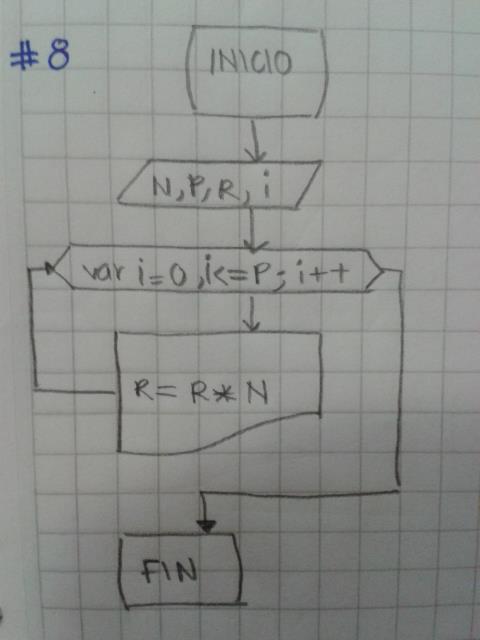 #8
INICIO
N,P,R,i
var i=0,i<=P; i++
R= R*N
FIN